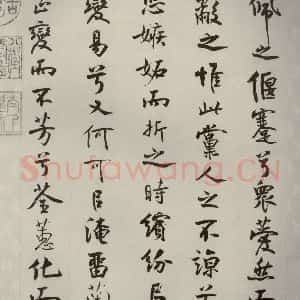 佩之偃蹇兮衆薆然而
蔽之惟此黨人之不諒兮
恐嫉妬而折之時繽紛㠯
變易兮又何可㠯淹留蘭
芷變而不芳兮荃蕙化而
Shufawang.CN